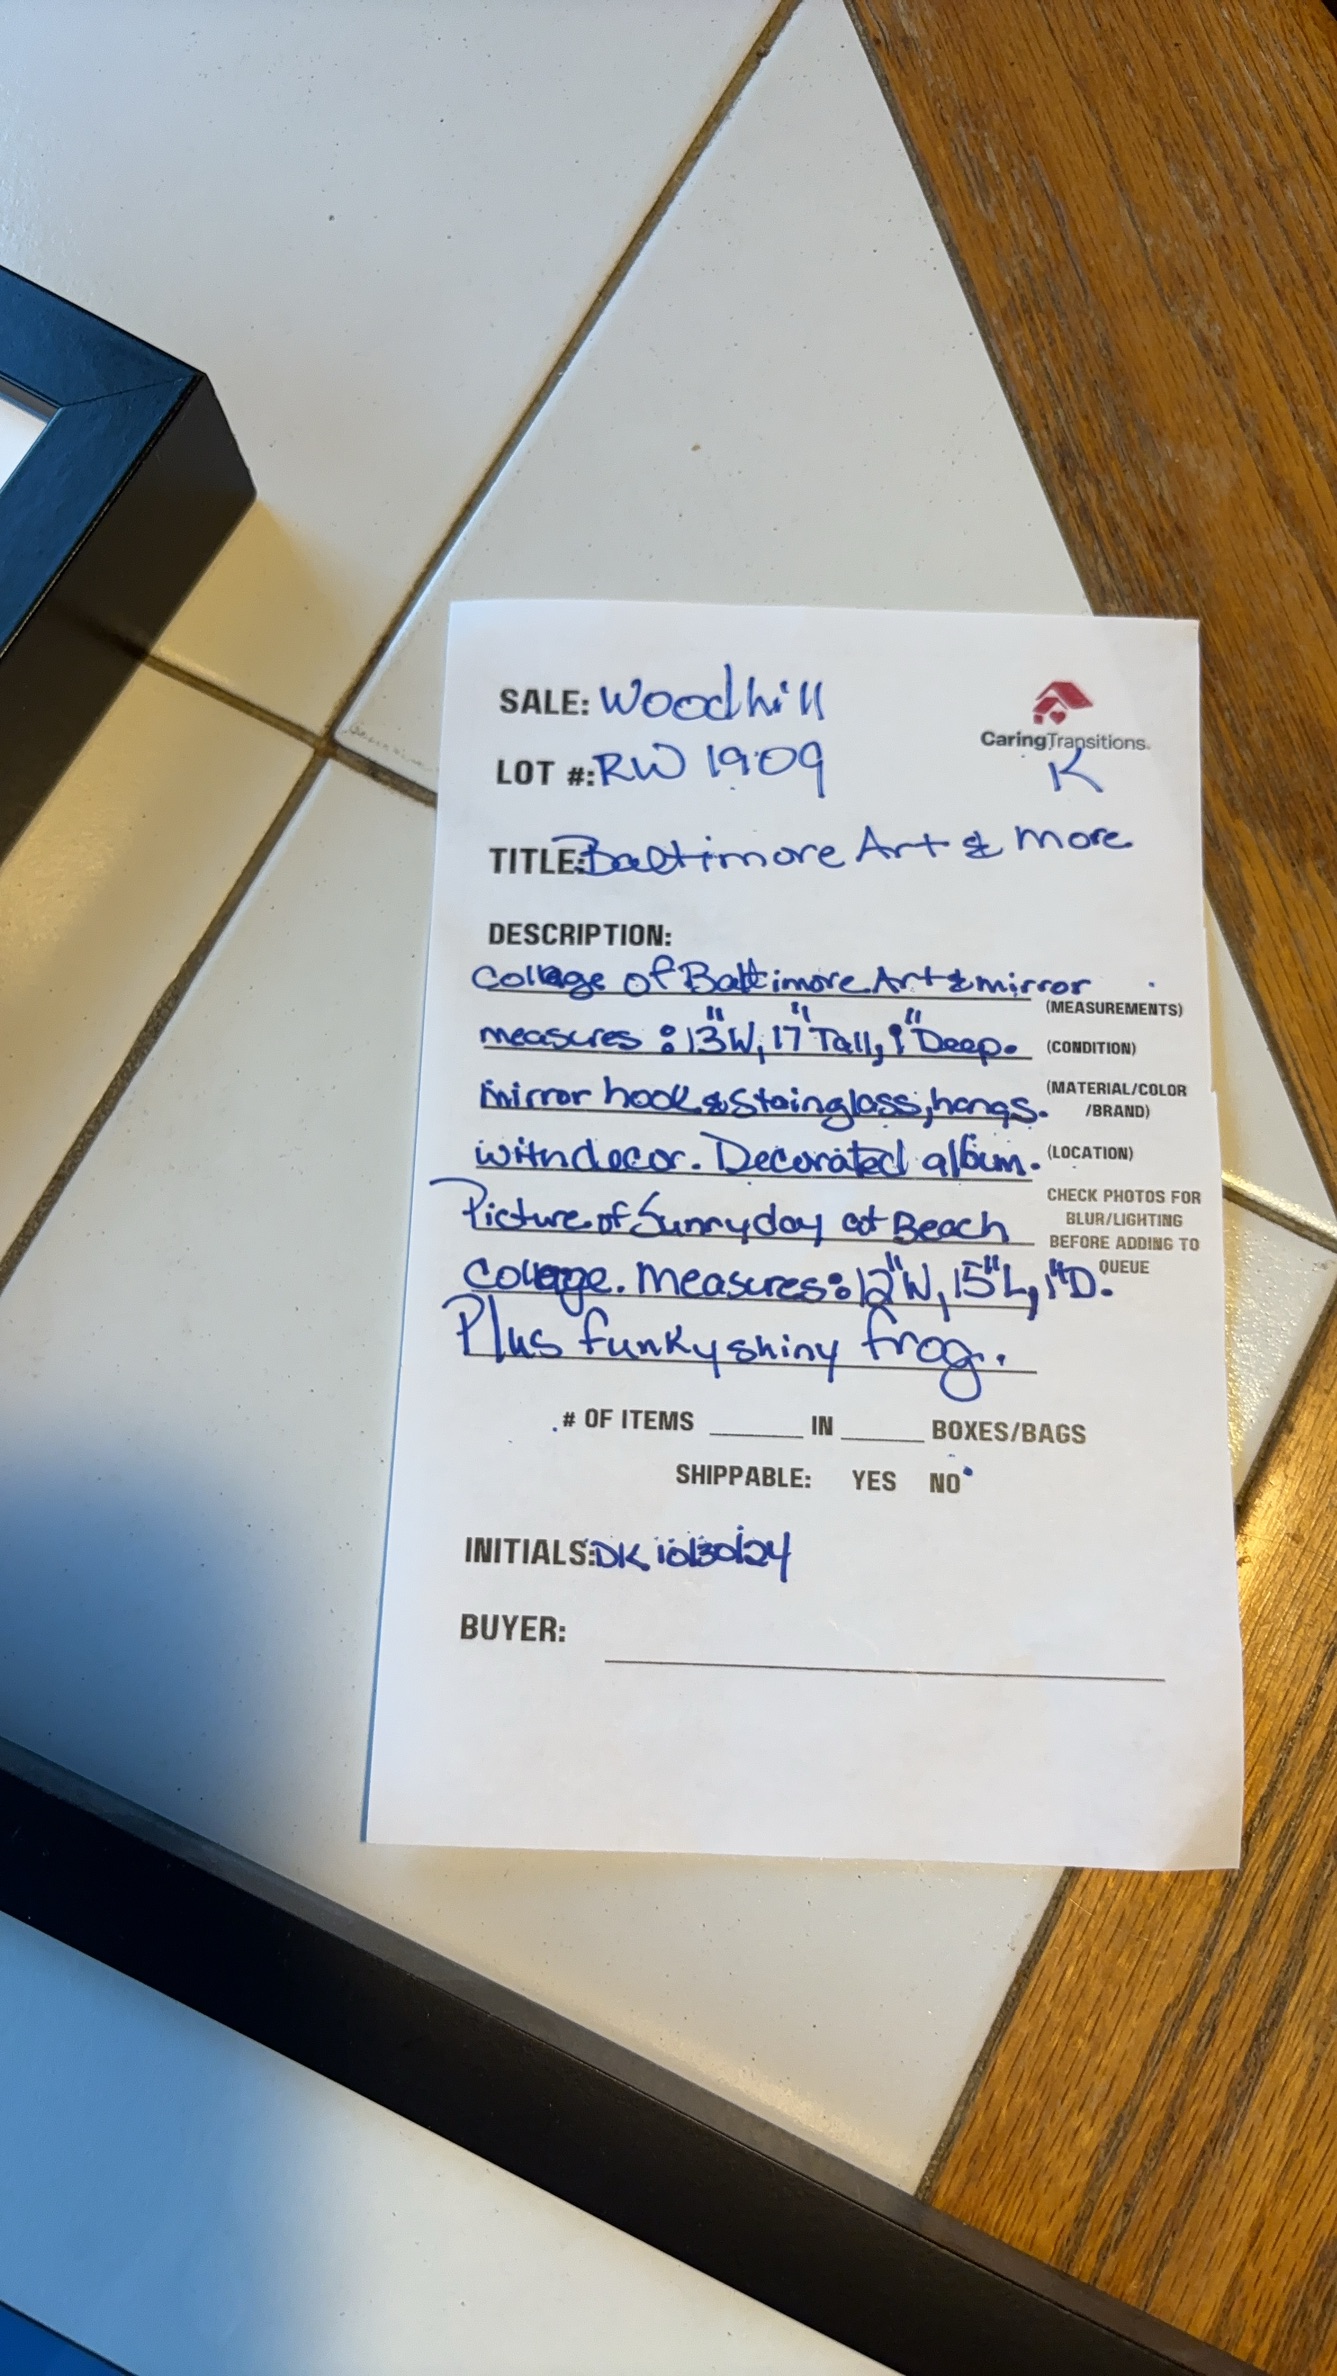 SALE: Woodhill
CaringTransitions
LOT #: RW 1909
K
TITLE: Baltimore Art & more
DESCRIPTION:
Collage of Baltimore Art & mirror
(MEASUREMENTS)
measures: 13"W, 17"Tall, 1"Deep.
(CONDITION)
mirror hook & Stainglass, hangs.
(MATERIAL/COLOR
/BRAND)
with decor. Decorated album.
(LOCATION)
Picture of Sunny day at Beach
CHECK PHOTOS FOR
BLUR/LIGHTING
BEFORE ADDING TO
QUEUE
Collage. Measures: 12"W, 15"L, 1"D.
Plus funky shiny frog.
# OF ITEMS ______ IN ______ BOXES/BAGS
SHIPPABLE: YES NO
INITIALS: DK 10/30/24
BUYER: